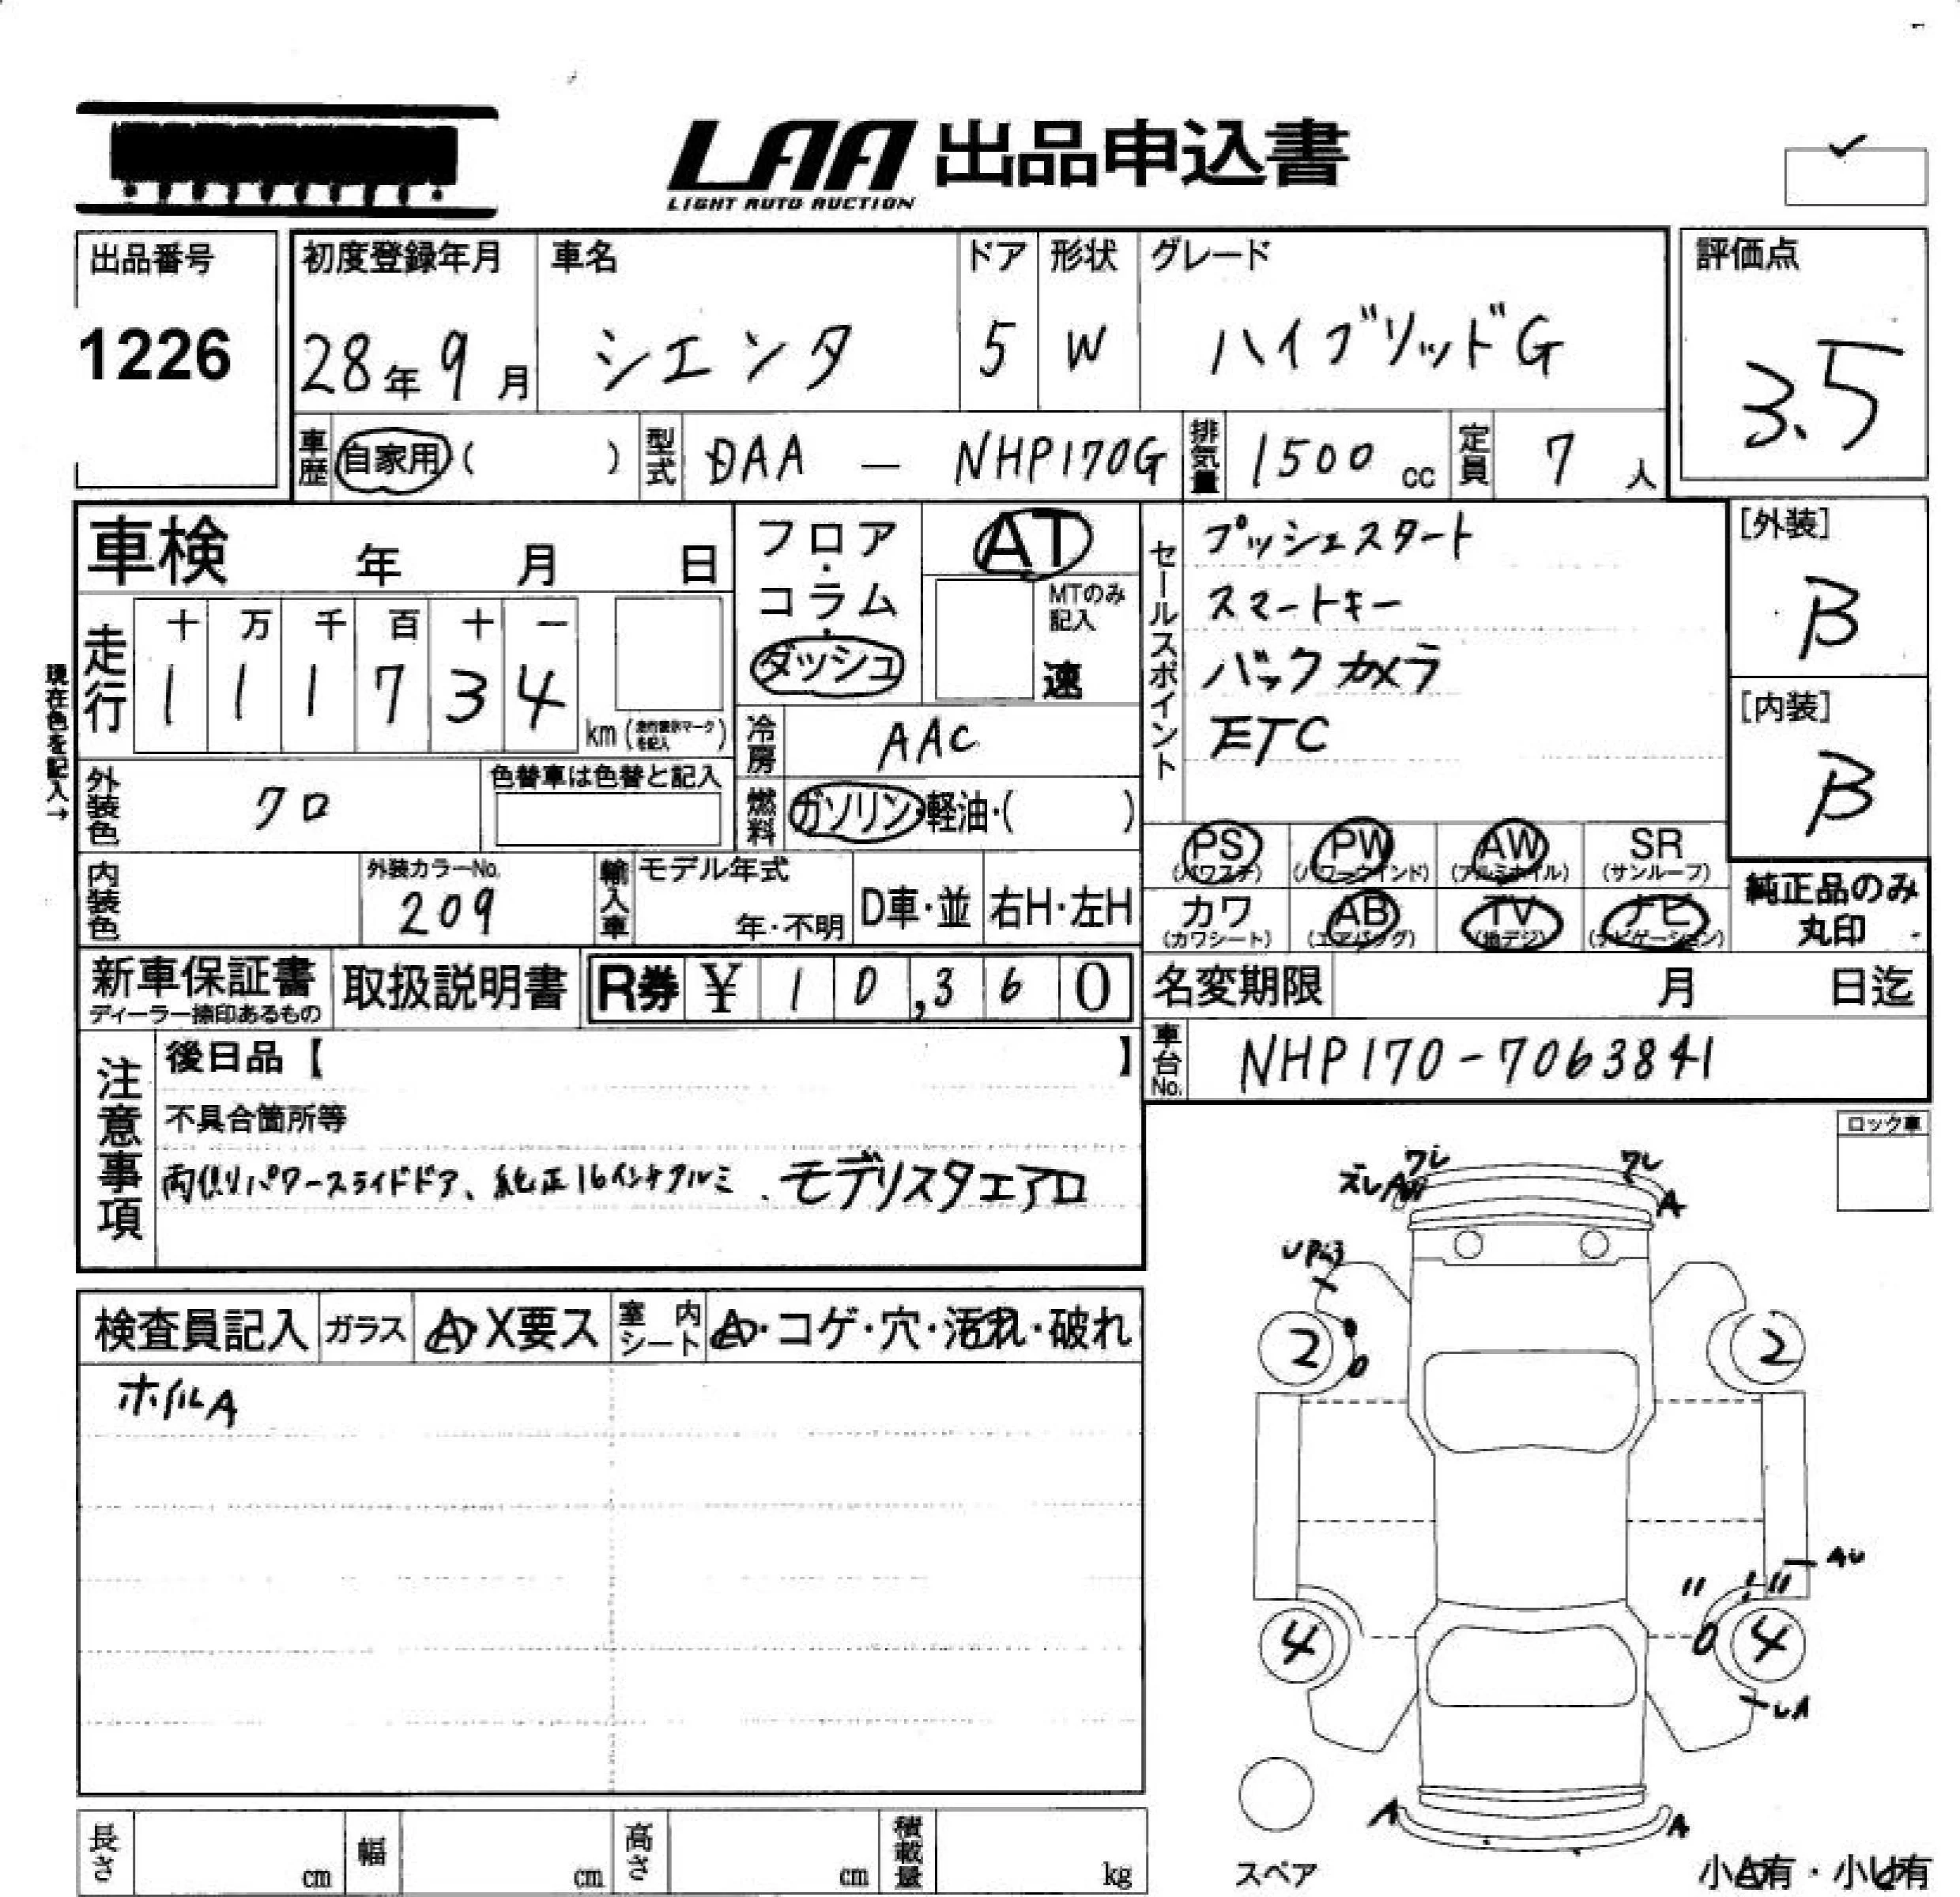 LAA 出品申込書
LIGHT AUTO AUCTION
出品番号
1226
初度登録年月
28年9月
車名
シエンタ
ドア
5
形状
W
グレード
ハイブリッドG
評価点
3.5
車歴
自家用( )
型式
DAA — NHP170G
排気量
1500 cc
定員
7 人
車検 年 月 日
走行
十 万 千 百 十 一
1 1 1 7 3 4
km(走行表示マークを記入)
現在色を記入→
外装色
クロ
色替車は色替と記入
内装色
外装カラーNo.
209
輸入車
モデル年式
年・不明
D車・並
右H・左H
フロア・コラム・ダッシュ
AT
MTのみ記入
速
冷房
AAC
燃料
ガソリン・軽油・( )
セールスポイント
プッシュスタート
スマートキー
バックカメラ
ETC
[外装]
B
[内装]
B
PS
(パワステ)
PW
(パワーウインド)
AW
(アルミホイル)
SR
(サンルーフ)
カワ
(カワシート)
AB
(エアバッグ)
TV
(地デジ)
ナビ
(ナビゲーション)
純正品のみ
丸印
新車保証書
ディーラー捺印あるもの
取扱説明書
R券 ¥ 10,360
名変期限 月 日迄
車台No.
NHP170-7063841
注意事項
後日品【 】
不具合箇所等
両側パワースライドドア、純正16インチアルミ、モデリスタエアロ
ロック車
検査員記入
ガラス
A・X要ス
室内シート
A・コゲ・穴・汚れ・破れ
ホイルA
ワレ
ワレ
ズレA
A
2
2
AU
〃
〃
4
4
UA
A
A
スペア
小A有・小U有
長さ cm
幅 cm
高さ cm
積載量 kg